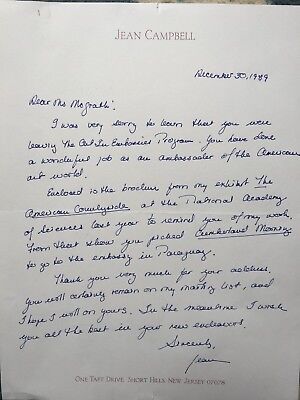 JEAN CAMPBELL
December 30, 1989
Dear Ms McGrath:
I was very sorry to learn that you were
leaving The Art In Embassies Program. You have done
a wonderful job as an ambassador of the American
art world.
Enclosed is the brochure from my exhibit The
American Countryside at the National Academy
of Sciences last year to remind you of my work.
From that show you picked Cumberland Morning
to go to the embassy in Paraguay.
Thank you very much for your catalogues,
you will certainly remain on my mailing list, and
I hope I will on yours. In the meantime I wish
you all the best in your new endeavors.
Sincerely,
Jean
ONE TAFT DRIVE, SHORT HILLS, NEW JERSEY 07078